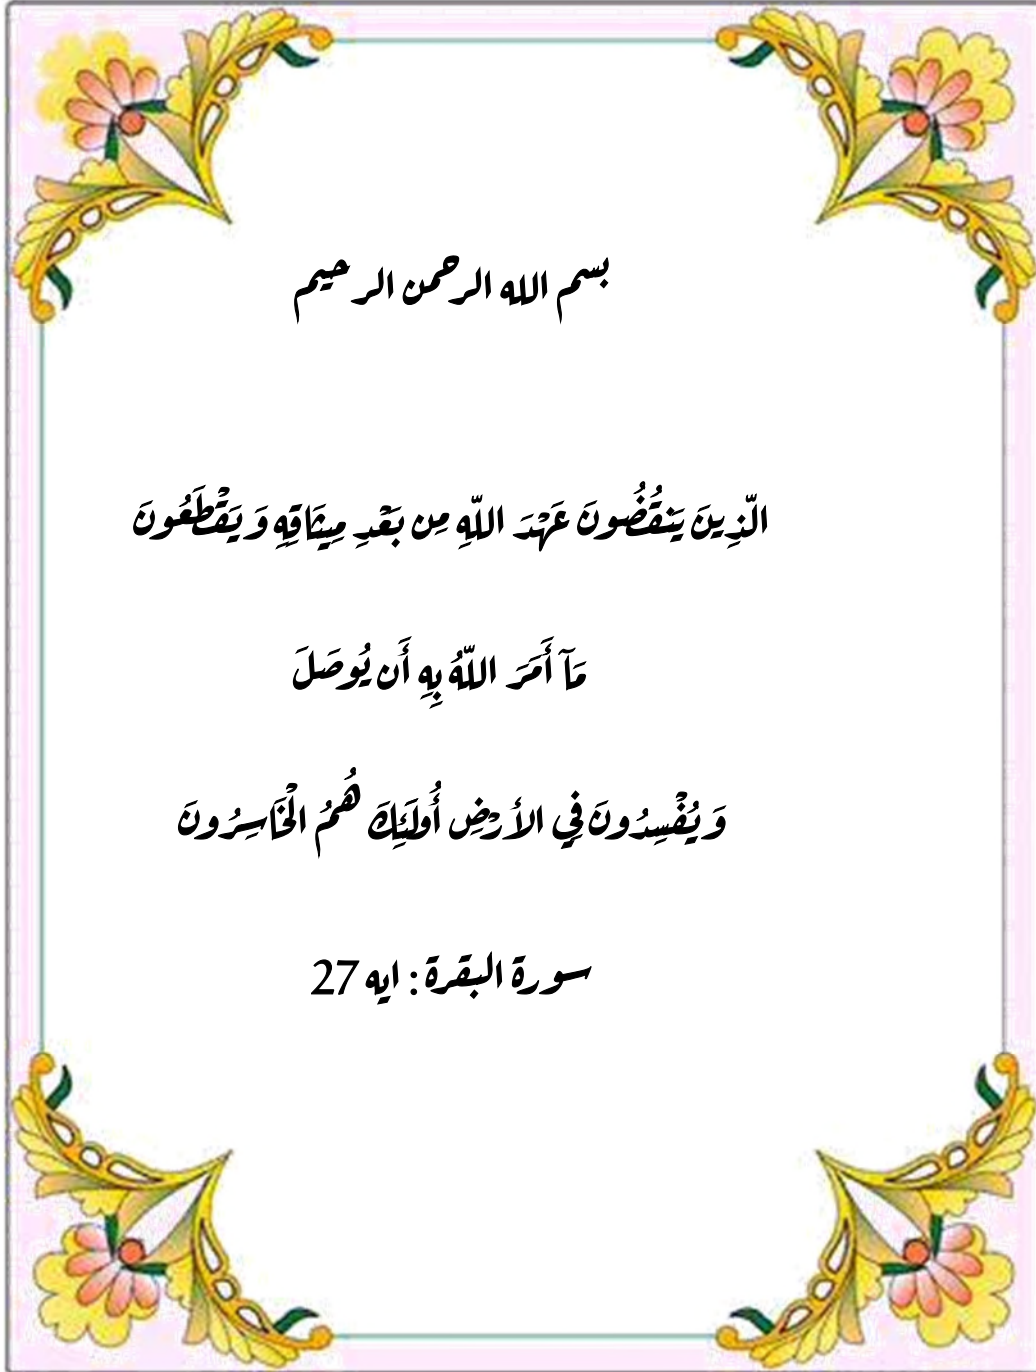 بسم الله الرحمن الرحيم
الَّذِينَ يَنقُضُونَ عَهْدَ اللَّهِ مِن بَعْدِ مِيثَاقِهِ وَيَقْطَعُونَ
مَآ أَمَرَ اللَّهُ بِهِ أَن يُوصَلَ
وَيُفْسِدُونَ فِي الأَرْضِ أُولَئِكَ هُمُ الْخَاسِرُونَ
سورة البقرة : ايه 27